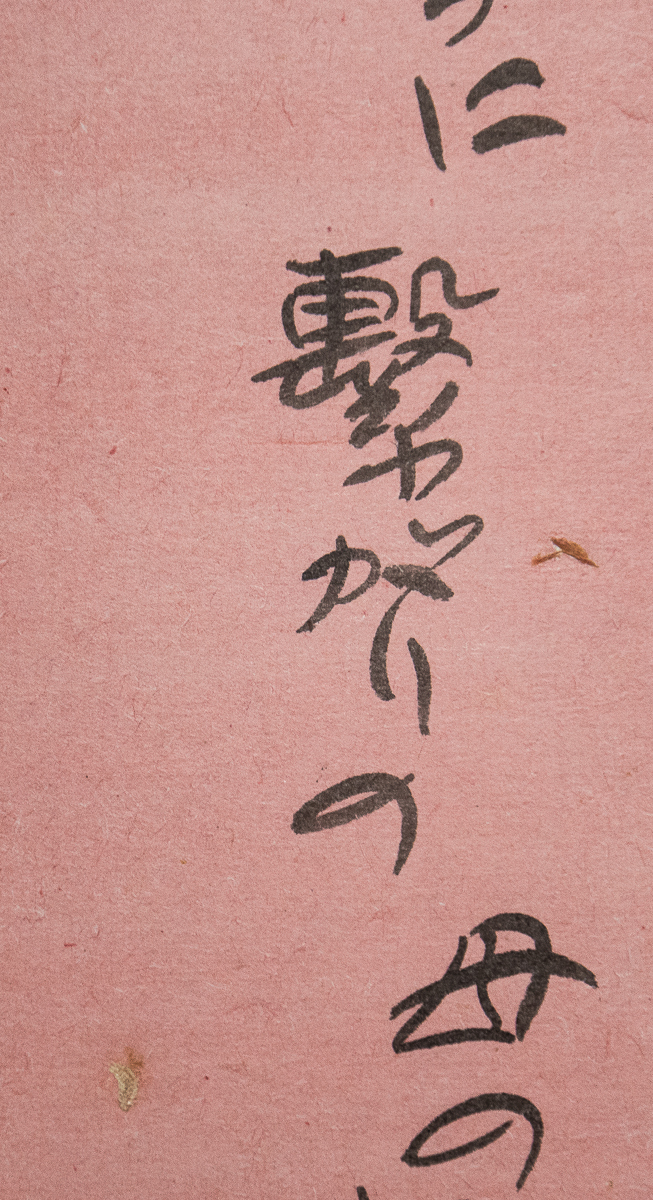 に繫がりの母の